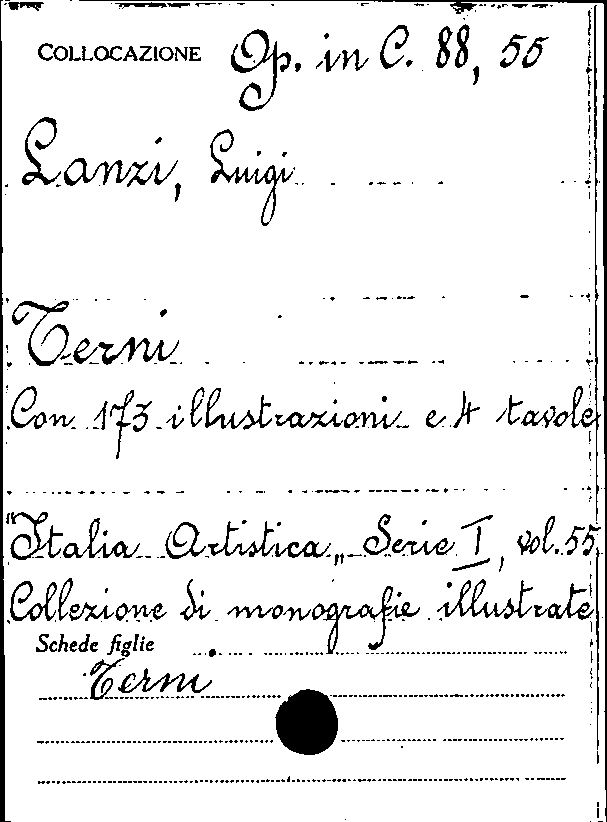 COLLOCAZIONE Op. in C. 88, 55
Lanzi, Luigi
Terni
Con 173 illustrazioni e 4 tavole
"Italia Artistica„ Serie I, vol. 55
Collezione di monografie illustrate
Schede figlie
Terni